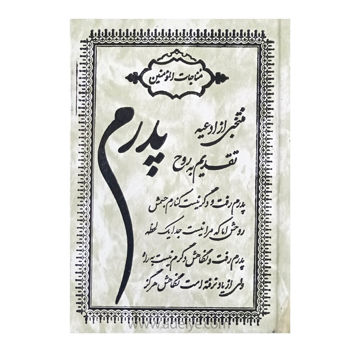 مناجات المؤمنین
منتخبی از ادعیه
تقدیم به روح
پدرم
پدرم رفت و دگر نیست کنارم جسمش
روحش اما که مرا نیست جدا یک لحظه
پدرم رفت و نگاهش دگرم نیست به راه
ولی از یاد نرفته است نگاهش هرگز